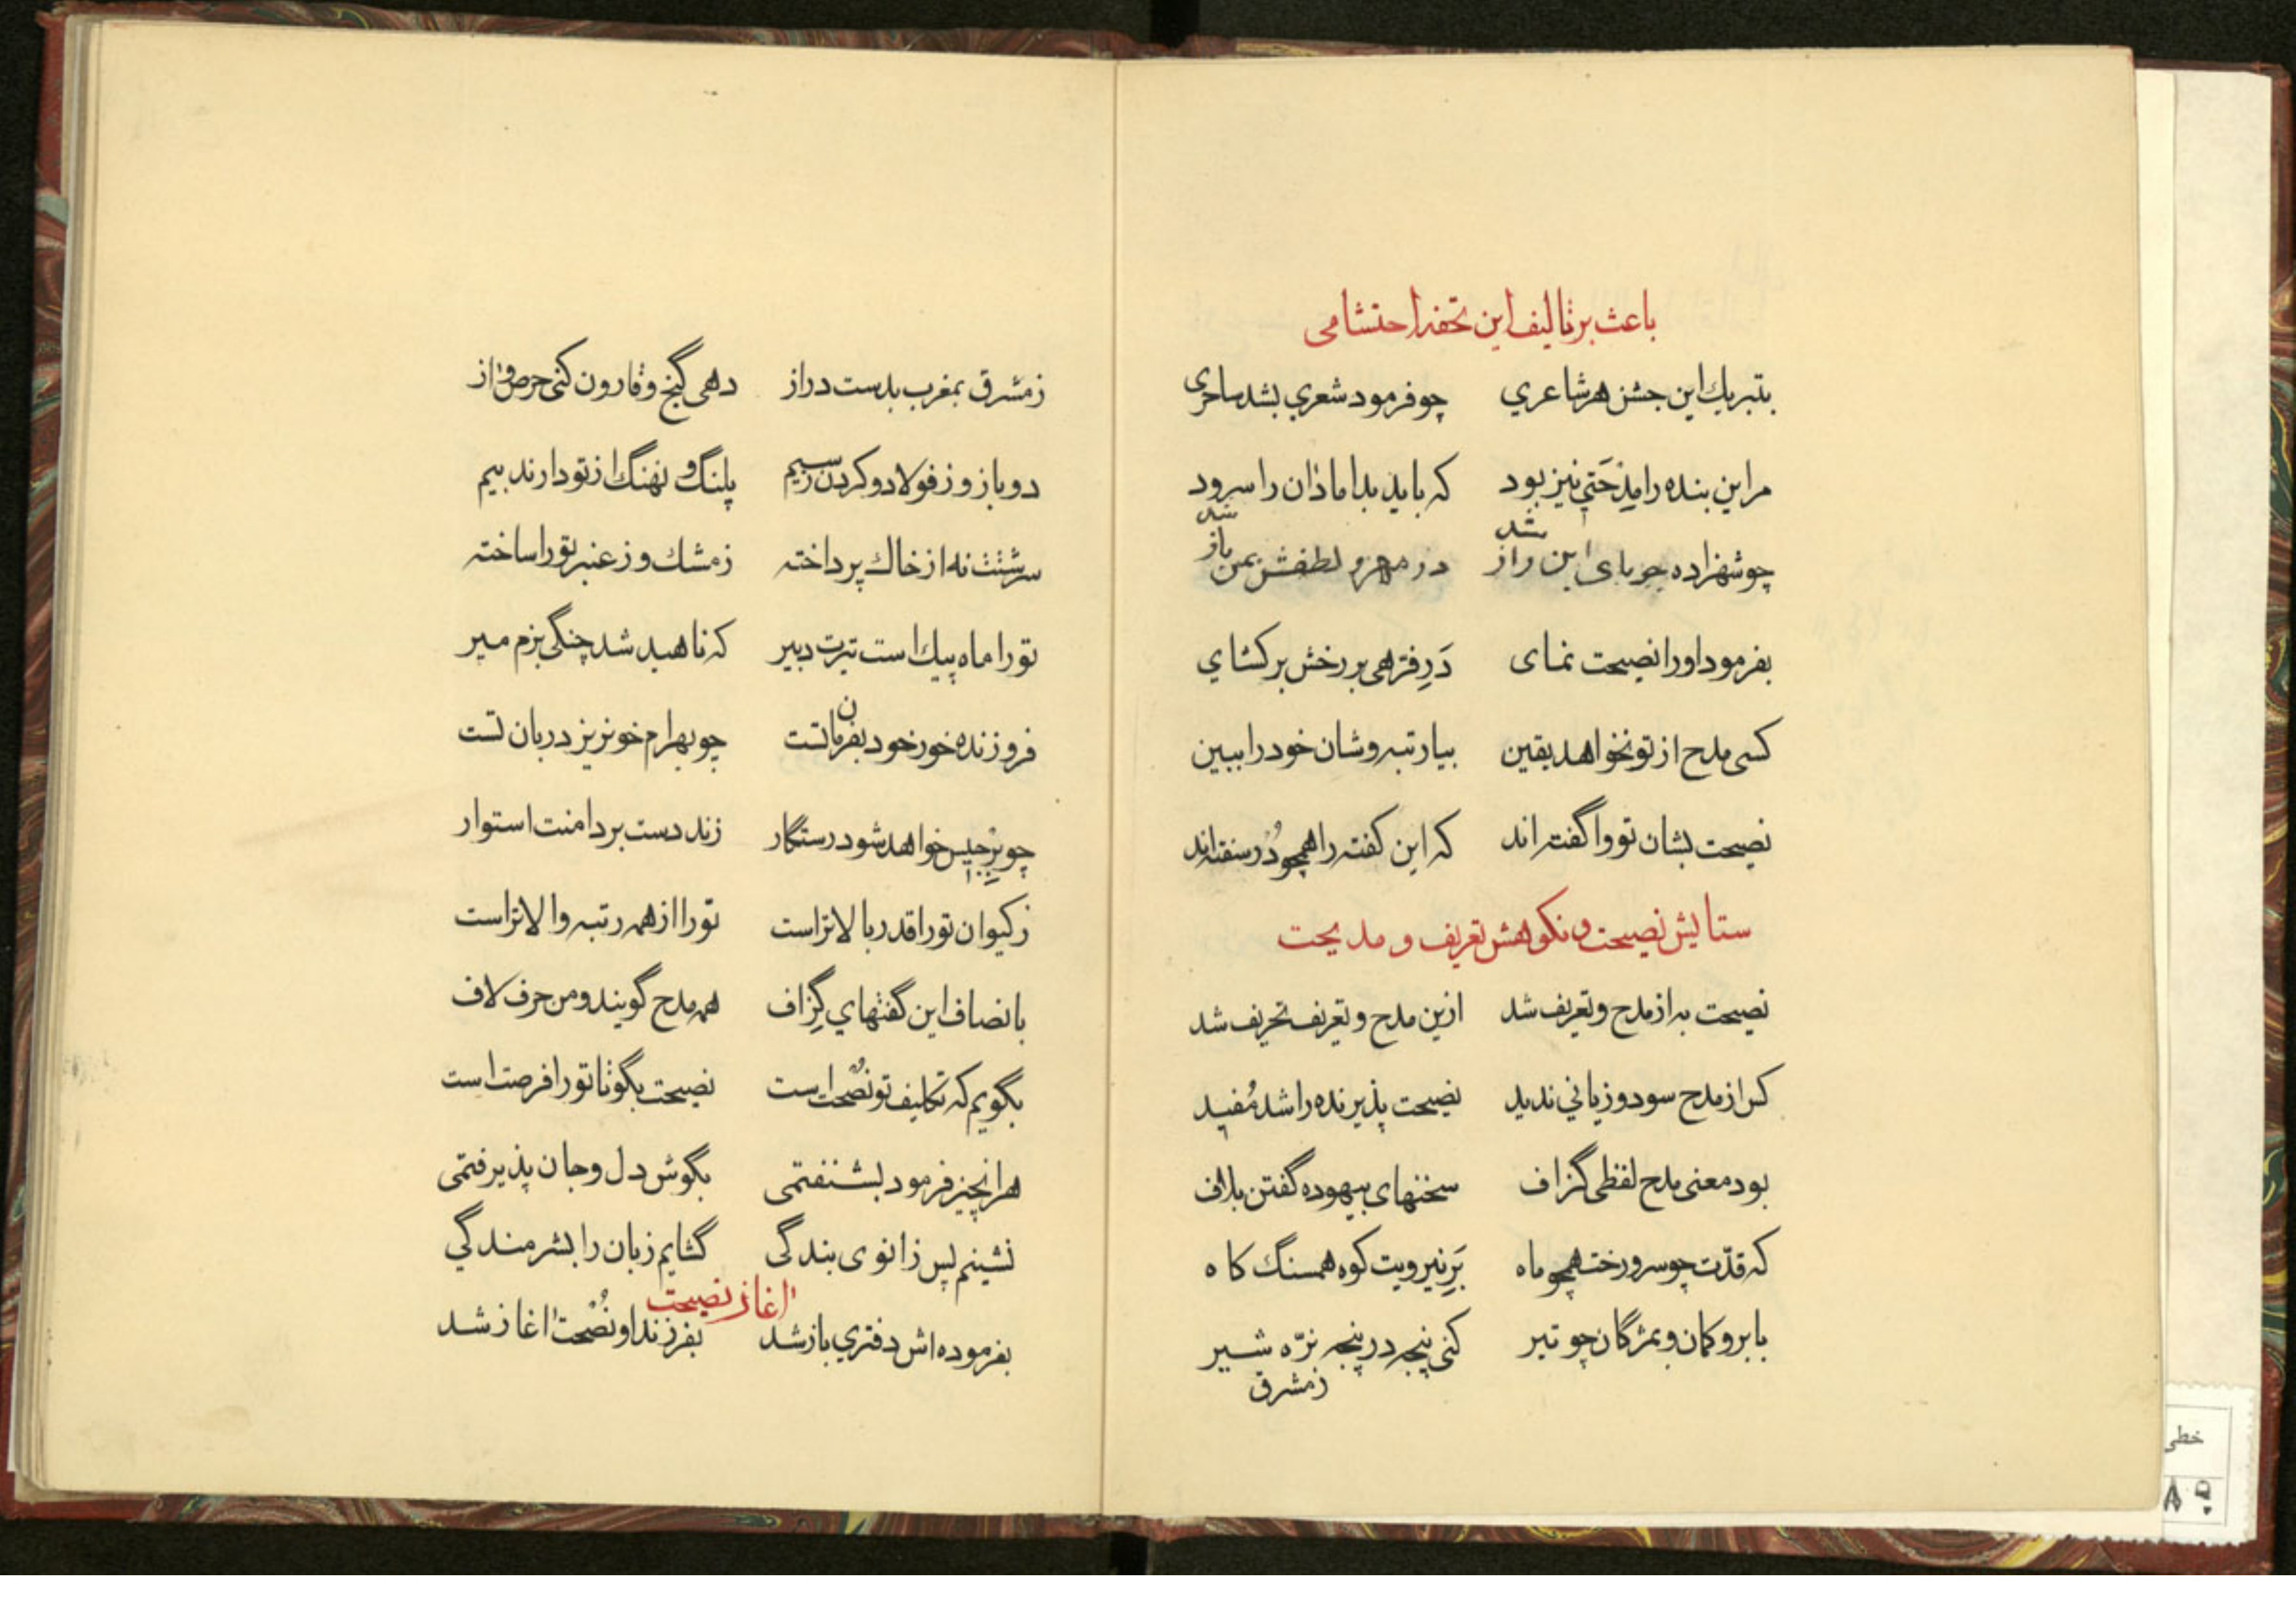 باعث بر تاليف اين تحفه احتشامى
بتبريك اين جشن هر شاعري چو فرمود شعري بشد ساحرى
مر اين بنده را مِدْحَتي نيز بود كه بايد بداماد آن را سرود
چو شهزاده جوياى اين راز شد در مهر و لطفش بمن باز شد
بفرمود او را نصيحت نماى دَرِ فرّهى بر رخش بر كشاي
كسى مدح از تو نخواهد يقين بيا رتبه و شان خود را ببين
نصيحت بشان تو وا گفته اند كه اين گفته را همچو دُر سفته اند
ستايش نصيحت و نكوهش تعريف و مديحت
نصيحت به از مدح و تعريف شد ازين مدح و تعريف تحريف شد
كس از مدح سود و زياني نديد نصيحت پذيرنده را شد مُفيد
بود معنى مدح لفظى گزاف سخنهاى بيهوده گفتن بلاف
كه قدّت چو سرو رخت همچو ماه بَرِ نيرويت كوه همسنگ كاه
بابرو كمان و بمژگان چو تير كنى پنجه در پنجه نرّه شير
زمشرق
زمشرق بمغرب بدست دراز دهى گنج و قارون كنى حرص و آز
دو بازو ز فولاد و گردن ز سيم پلنگ و نهنگ از تو دارند بيم
سرشتت نه از خاك پرداخته زمشك و ز عنبر تو را ساخته
تو را ماه پيك است تيرت دبير كه ناهيد شد چنگى بزم مير
فروزنده خور خود بفرمان تست چو بهرام خونريز دربان تست
چو بِرْجيس خواهد شود رستگار زند دست بر دامنت استوار
ز كيوان تو را قدر بالاتر است تو را از همه رتبه والاتر است
بانصاف اين گفتهاي گِزاف همه مدح گويند و من حرف لاف
بگويم كه تكليف تو نُصْحت است نصيحت بگو تا تو را فرصت است
هر آنچيز فرمود بشنفتمى بگوش دل و جان پذيرفتمى
نشينم پس زانوى بندگى گشايم زبان را بشرمندگي
آغاز نصيحت
بفرموده اش دفتري باز شد بفرزند او نُصْحت آغاز شد
خطى